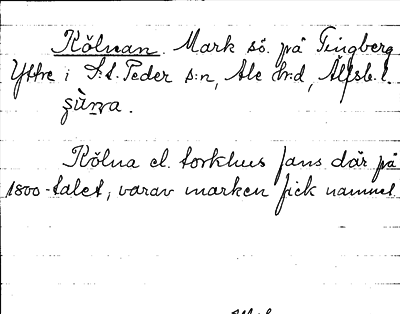 Kölnan. Mark sö. på Tingberg
Yttre i S:t Peder s:n, Ale hd, Älfsb. l.
Kölna el. torkhus fans där på
1800-talet, varav marken fick namnet